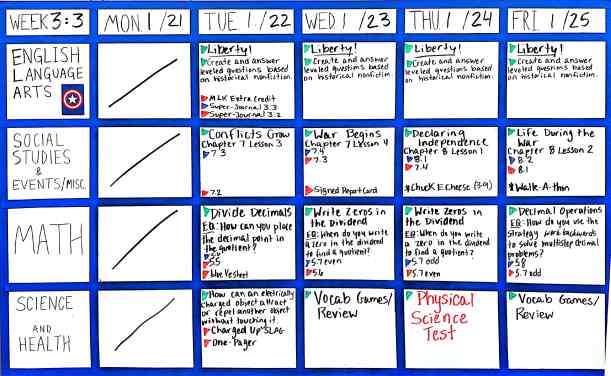 WEEK 3:3
MON. 1/21
TUE 1/22
WED 1/23
THU. 1/24
FRI 1/25
ENGLISH
LANGUAGE
ARTS
Liberty!
Create and answer
leveled questions based
on historical nonfiction.
MLK Extra Credit
Super-Journal 3:3
Super-Journal 3:2
Liberty!
Create and answer
leveled questions based
on historical nonfiction.
Liberty!
Create and answer
leveled questions based
on historical nonfiction.
Liberty!
Create and answer
leveled questions based
on historical nonfiction.
SOCIAL
STUDIES
&
EVENTS/MISC.
Conflicts Grow
Chapter 7 Lesson 3
7.3
7.2
War Begins
Chapter 7 Lesson 4
7.4
7.3
Signed Report Card
Declaring
Independence
Chapter 8 Lesson 1
8.1
7.4
Chuck E Cheese (3-9)
Life During the
War
Chapter 8 Lesson 2
8.2
8.1
Walk-A-thon
MATH
Divide Decimals
EQ: How can you place
the decimal point in
the quotient?
5.6
5.5
blue Ves sheet
Write Zeros in
the Dividend
EQ: When do you write
a zero in the dividend
to find a quotient?
5.7 even
5.6
Write Zeros in
the Dividend
EQ: When do you write
a zero in the dividend
to find a quotient?
5.7 odd
5.7 even
Decimal Operations
EQ: How do you use the
strategy work backwards
to solve multistep decimal
problems?
5.8
5.7 odd
SCIENCE
AND
HEALTH
How can an electrically
charged object attract
or repel another object
without touching it.
Charged Up SLAG
One-Pager
Vocab Games/
Review
Physical
Science
Test
Vocab Games/
Review